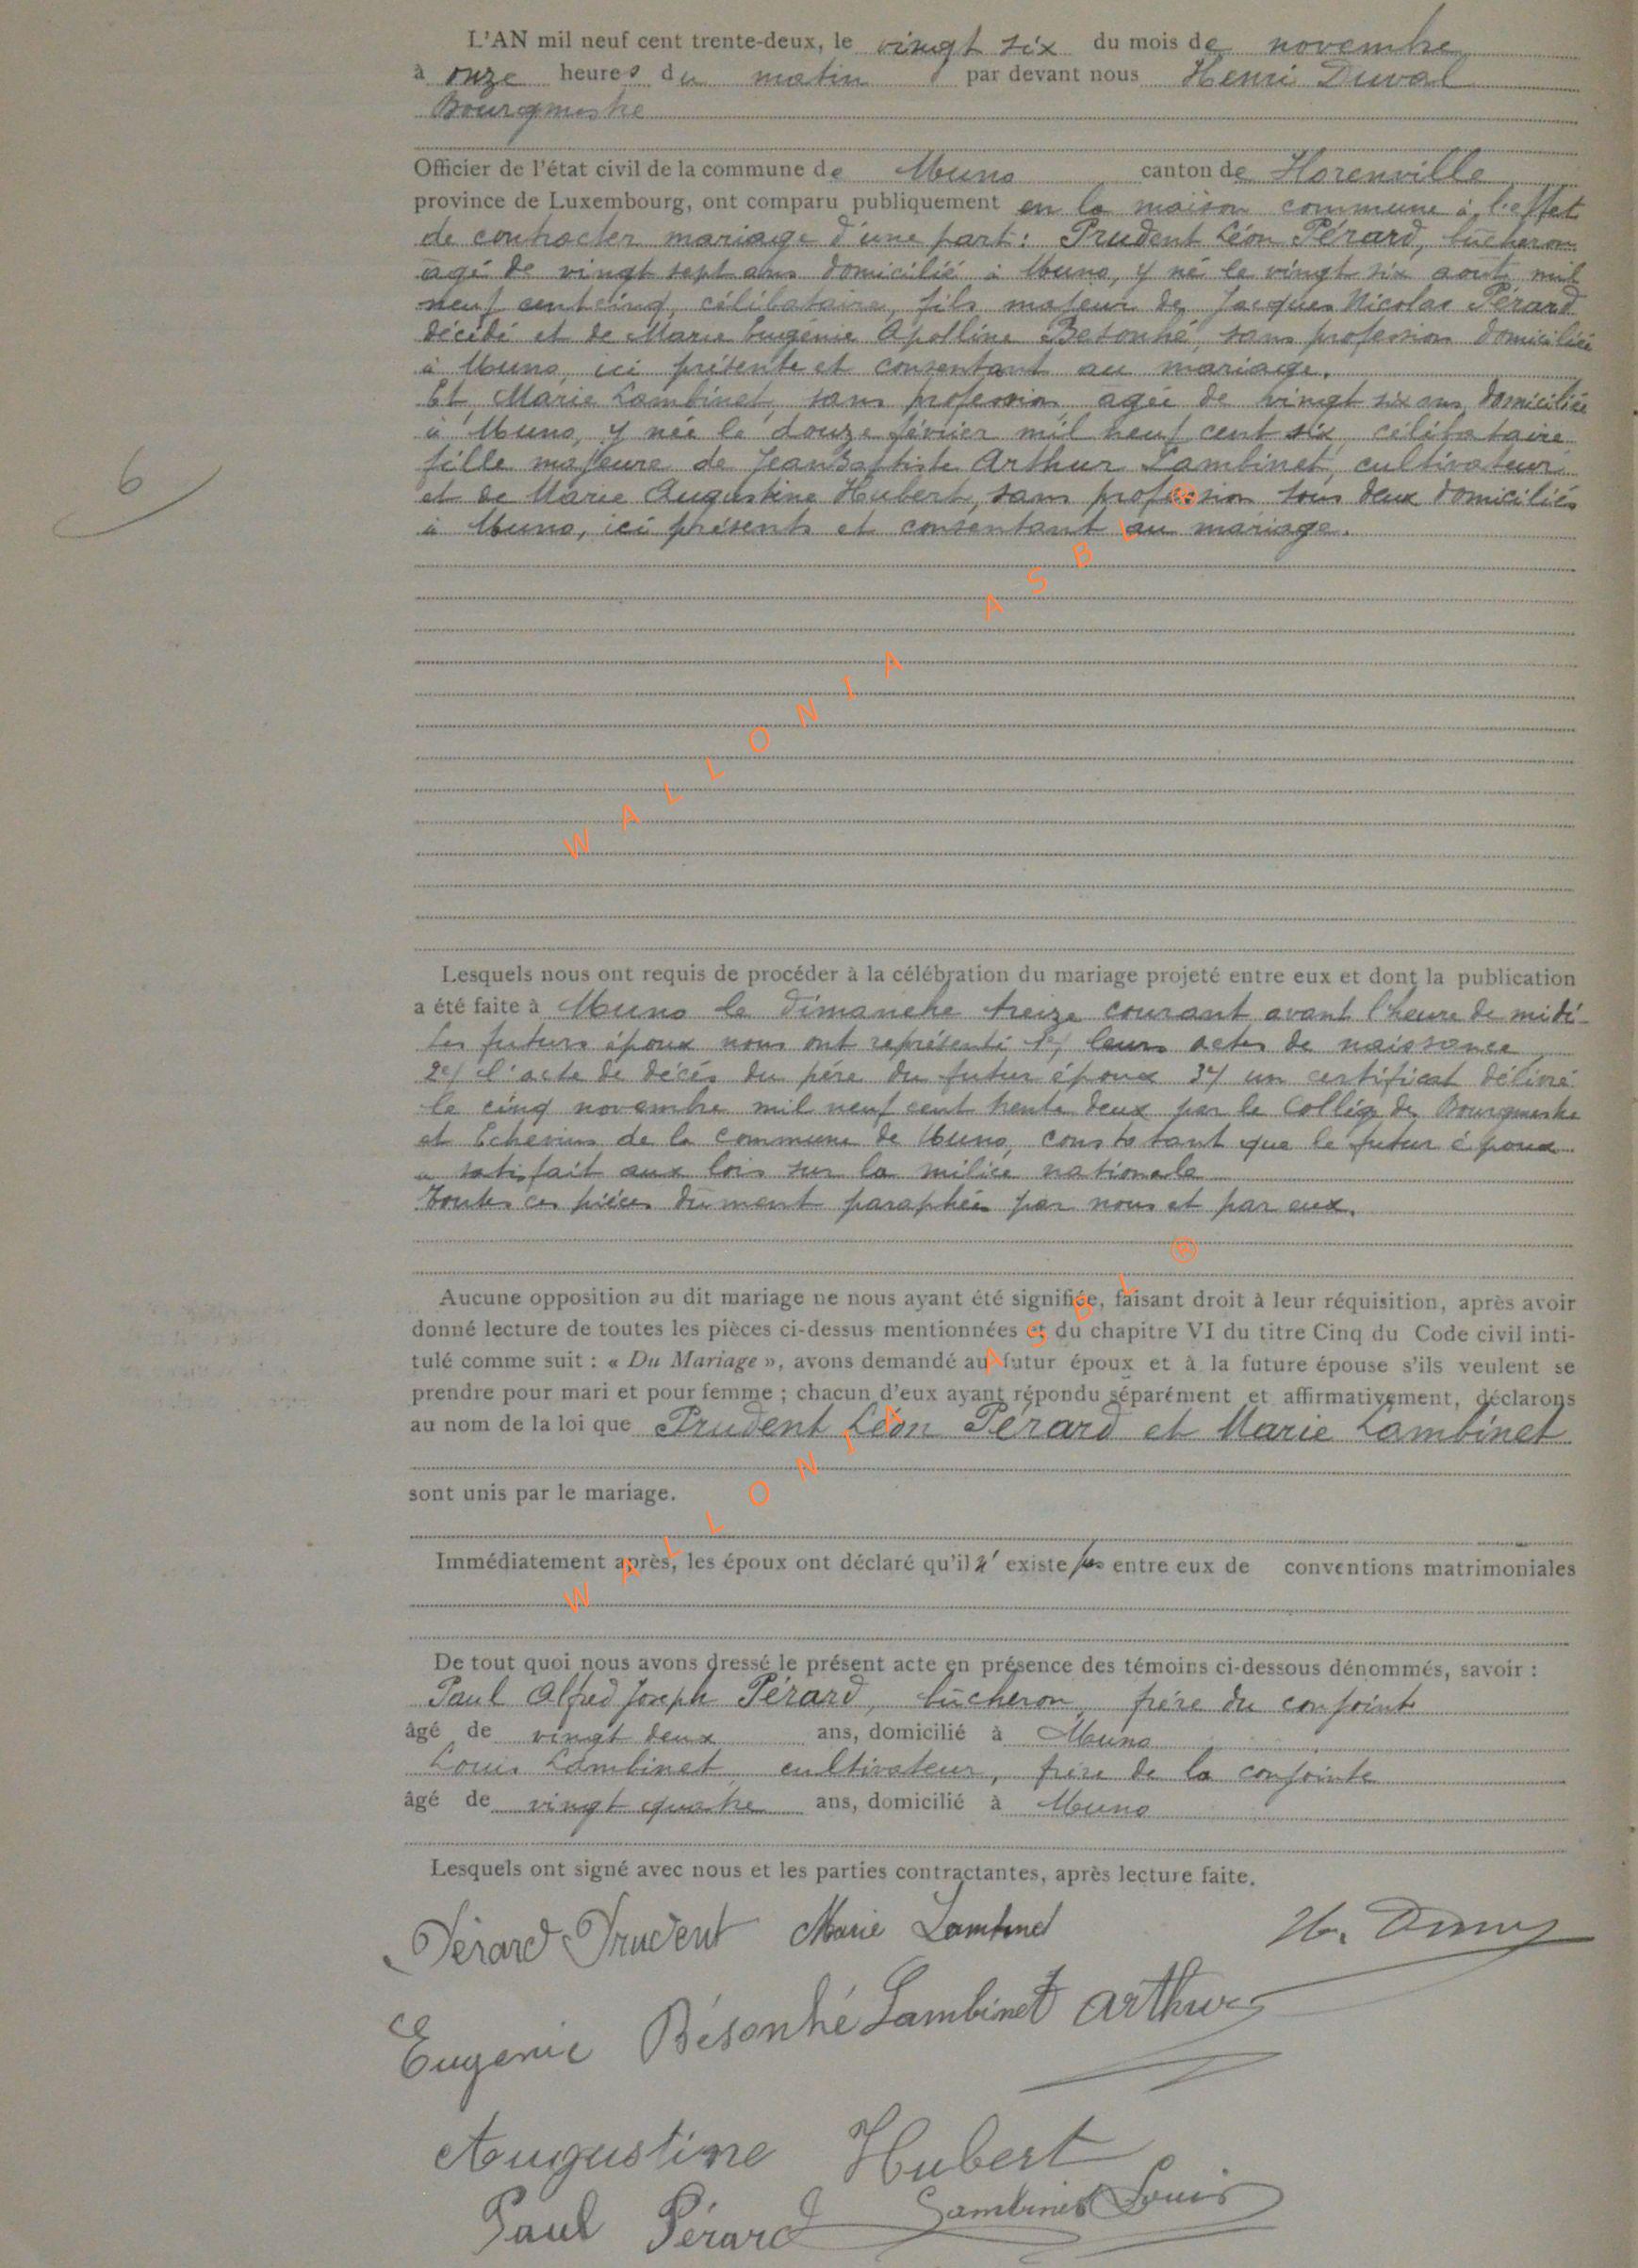 L'AN mil neuf cent trente-deux, le vingt six du mois de novembre
à onze heures du matin par devant nous Henri Duval
Bourgmestre
Officier de l'état civil de la commune de Muno canton de Florenville
province de Luxembourg, ont comparu publiquement en la maison commune à l'effet
de contracter mariage d'une part: Prudent Léon Pérard, bûcheron
agé de vingt sept ans domicilié à Muno, y né le vingt six août mil
neuf cent cinq, célibataire, fils majeur de Jacques Nicolas Pérard
décédé et de Marie Eugénie Apolline Besonhé, sans profession domiciliée
à Muno, ici présente et consentant au mariage.
Et Marie Lambinet, sans profession agée de vingt six ans, domiciliée
à Muno, y née le douze février mil neuf cent six, célibataire
fille majeure de Jean Baptiste Arthur Lambinet, cultivateur
et de Marie Augustine Hubert, sans profession tous deux domiciliés
à Muno, ici présents et consentant au mariage.
6
WALLONIA ASBL ®
Lesquels nous ont requis de procéder à la célébration du mariage projeté entre eux et dont la publication
a été faite à Muno le Dimanche treize courant avant l'heure de midi
Les futurs époux nous ont représenté 1e/ leurs actes de naissance
2e/ l'acte de décès du père du futur époux 3e/ un certificat délivré
le cinq novembre mil neuf cent trente deux par le Collège de Bourgmestre
et Echevins de la commune de Muno, constatant que le futur époux
a satisfait aux lois sur la milice nationale
Toutes ces pièces dûment paraphées par nous et par eux.
Aucune opposition au dit mariage ne nous ayant été signifiée, faisant droit à leur réquisition, après avoir
donné lecture de toutes les pièces ci-dessus mentionnées et du chapitre VI du titre Cinq du Code civil inti-
tulé comme suit : « Du Mariage », avons demandé au futur époux et à la future épouse s'ils veulent se
prendre pour mari et pour femme ; chacun d'eux ayant répondu séparément et affirmativement, déclarons
au nom de la loi que Prudent Léon Pérard et Marie Lambinet
sont unis par le mariage.
Immédiatement après, les époux ont déclaré qu'il n' existe pas entre eux de conventions matrimoniales
WALLONIA ASBL ®
De tout quoi nous avons dressé le présent acte en présence des témoins ci-dessous dénommés, savoir :
Paul Alfred Joseph Pérard, bûcheron, frère du conjoint
âgé de vingt deux ans, domicilié à Muno
Louis Lambinet, cultivateur, frère de la conjointe
âgé de vingt quatre ans, domicilié à Muno
Lesquels ont signé avec nous et les parties contractantes, après lecture faite.
Pérard Prudent Marie Lambinet H. Duval
Eugenie Bésonhé Lambinet Arthur
Augustine Hubert
Paul Pérard Lambinet Louis